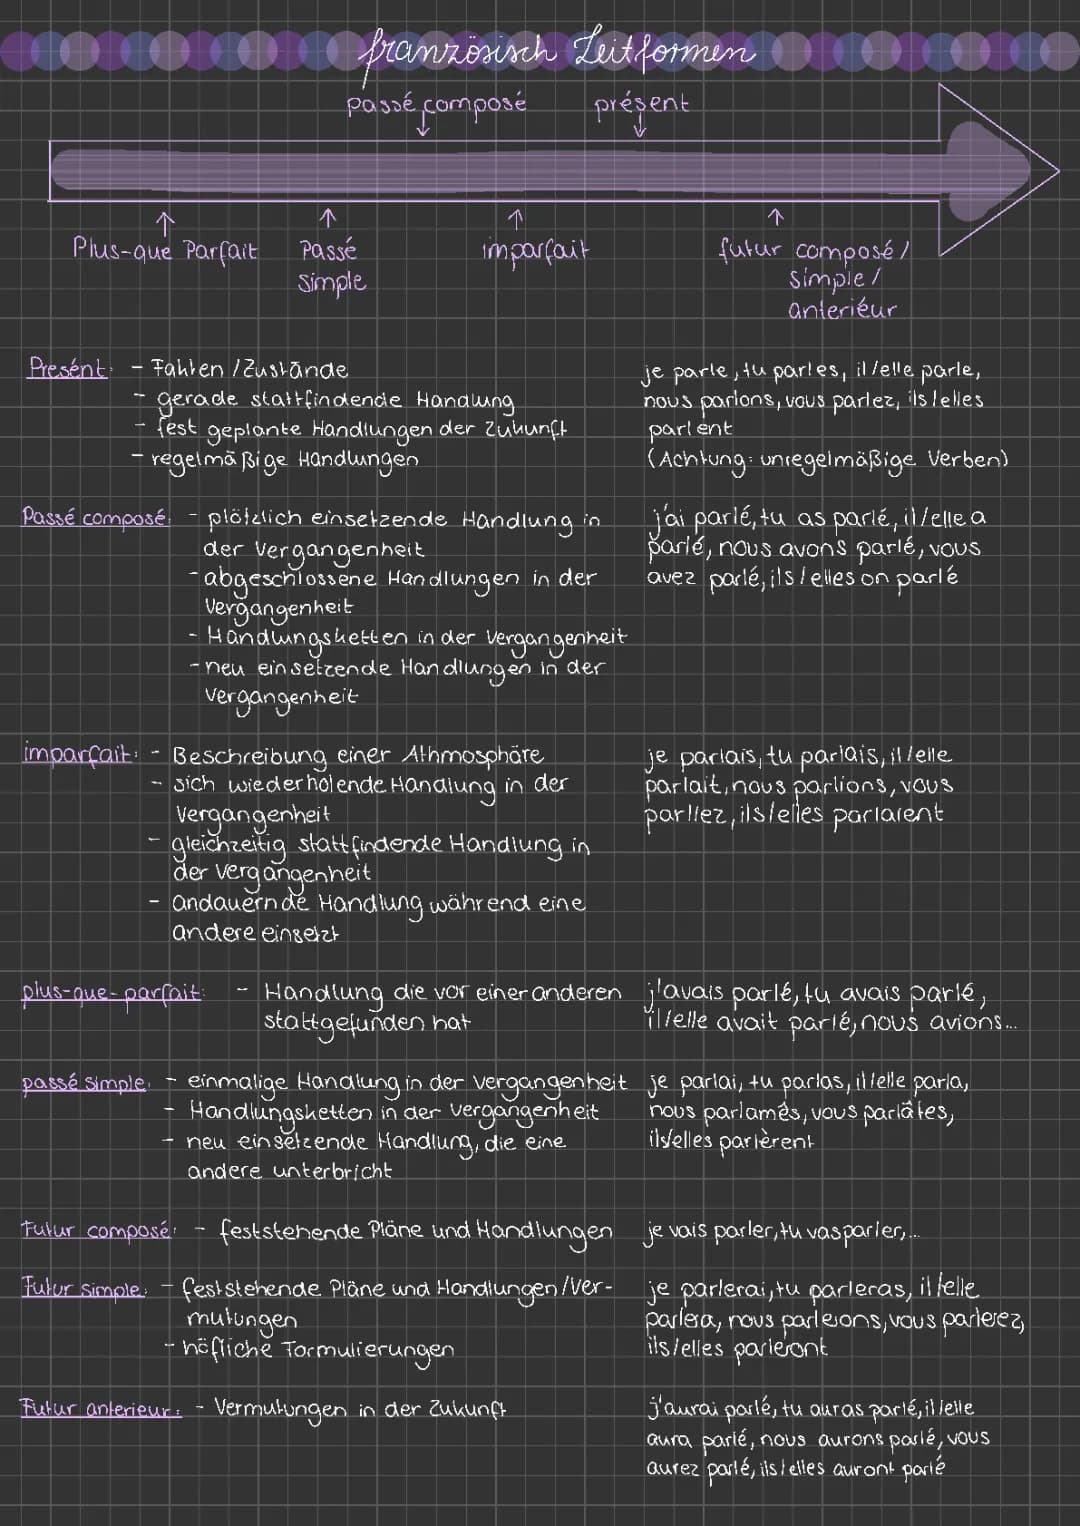 französisch Zeitformen
passé composé présent
Plus-que Parfait Passé imparfait futur composé /
simple simple /
anteriéur
Presént: - Fakten / Zustände je parle, tu parles, il/elle parle,
- gerade stattfindende Handlung nous parlons, vous parlez, ils/elles
- fest geplante Handlungen der Zukunft parlent
- regelmäßige Handlungen (Achtung: unregelmäßige Verben)
Passé composé: - plötzlich einsetzende Handlung in j'ai parlé, tu as parlé, il/elle a
der Vergangenheit parlé, nous avons parlé, vous
- abgeschlossene Handlungen in der avez parlé, ils/elles on parlé
Vergangenheit
- Handlungsketten in der Vergangenheit
- neu einsetzende Handlungen in der
Vergangenheit
imparfait: - Beschreibung einer Athmosphäre je parlais, tu parlais, il/elle
- sich wiederholende Handlung in der parlait, nous parlions, vous
Vergangenheit parliez, ils/elles parlaient
- gleichzeitig stattfindende Handlung in
der Vergangenheit
- andauernde Handlung während eine
andere einsetzt
plus-que-parfait: - Handlung die vor einer anderen j'avais parlé, tu avais parlé,
stattgefunden hat il/elle avait parlé, nous avions...
passé simple: - einmalige Handlung in der Vergangenheit je parlai, tu parlas, il/elle parla,
- Handlungsketten in der Vergangenheit nous parlamês, vous parlâtes,
- neu einsetzende Handlung, die eine ils/elles parlèrent
andere unterbricht
Futur composé: - feststehende Pläne und Handlungen je vais parler, tu vas parler,...
Futur simple: - feststehende Pläne und Handlungen/Ver- je parlerai, tu parleras, il/elle
mutungen parlera, nous parlerons, vous parlerez,
- höfliche Formulierungen ils/elles parleront
Futur anterieur: - Vermutungen in der Zukunft j'aurai parlé, tu auras parlé, il/elle
aura parlé, nous aurons parlé, vous
aurez parlé, ils/elles auront parlé